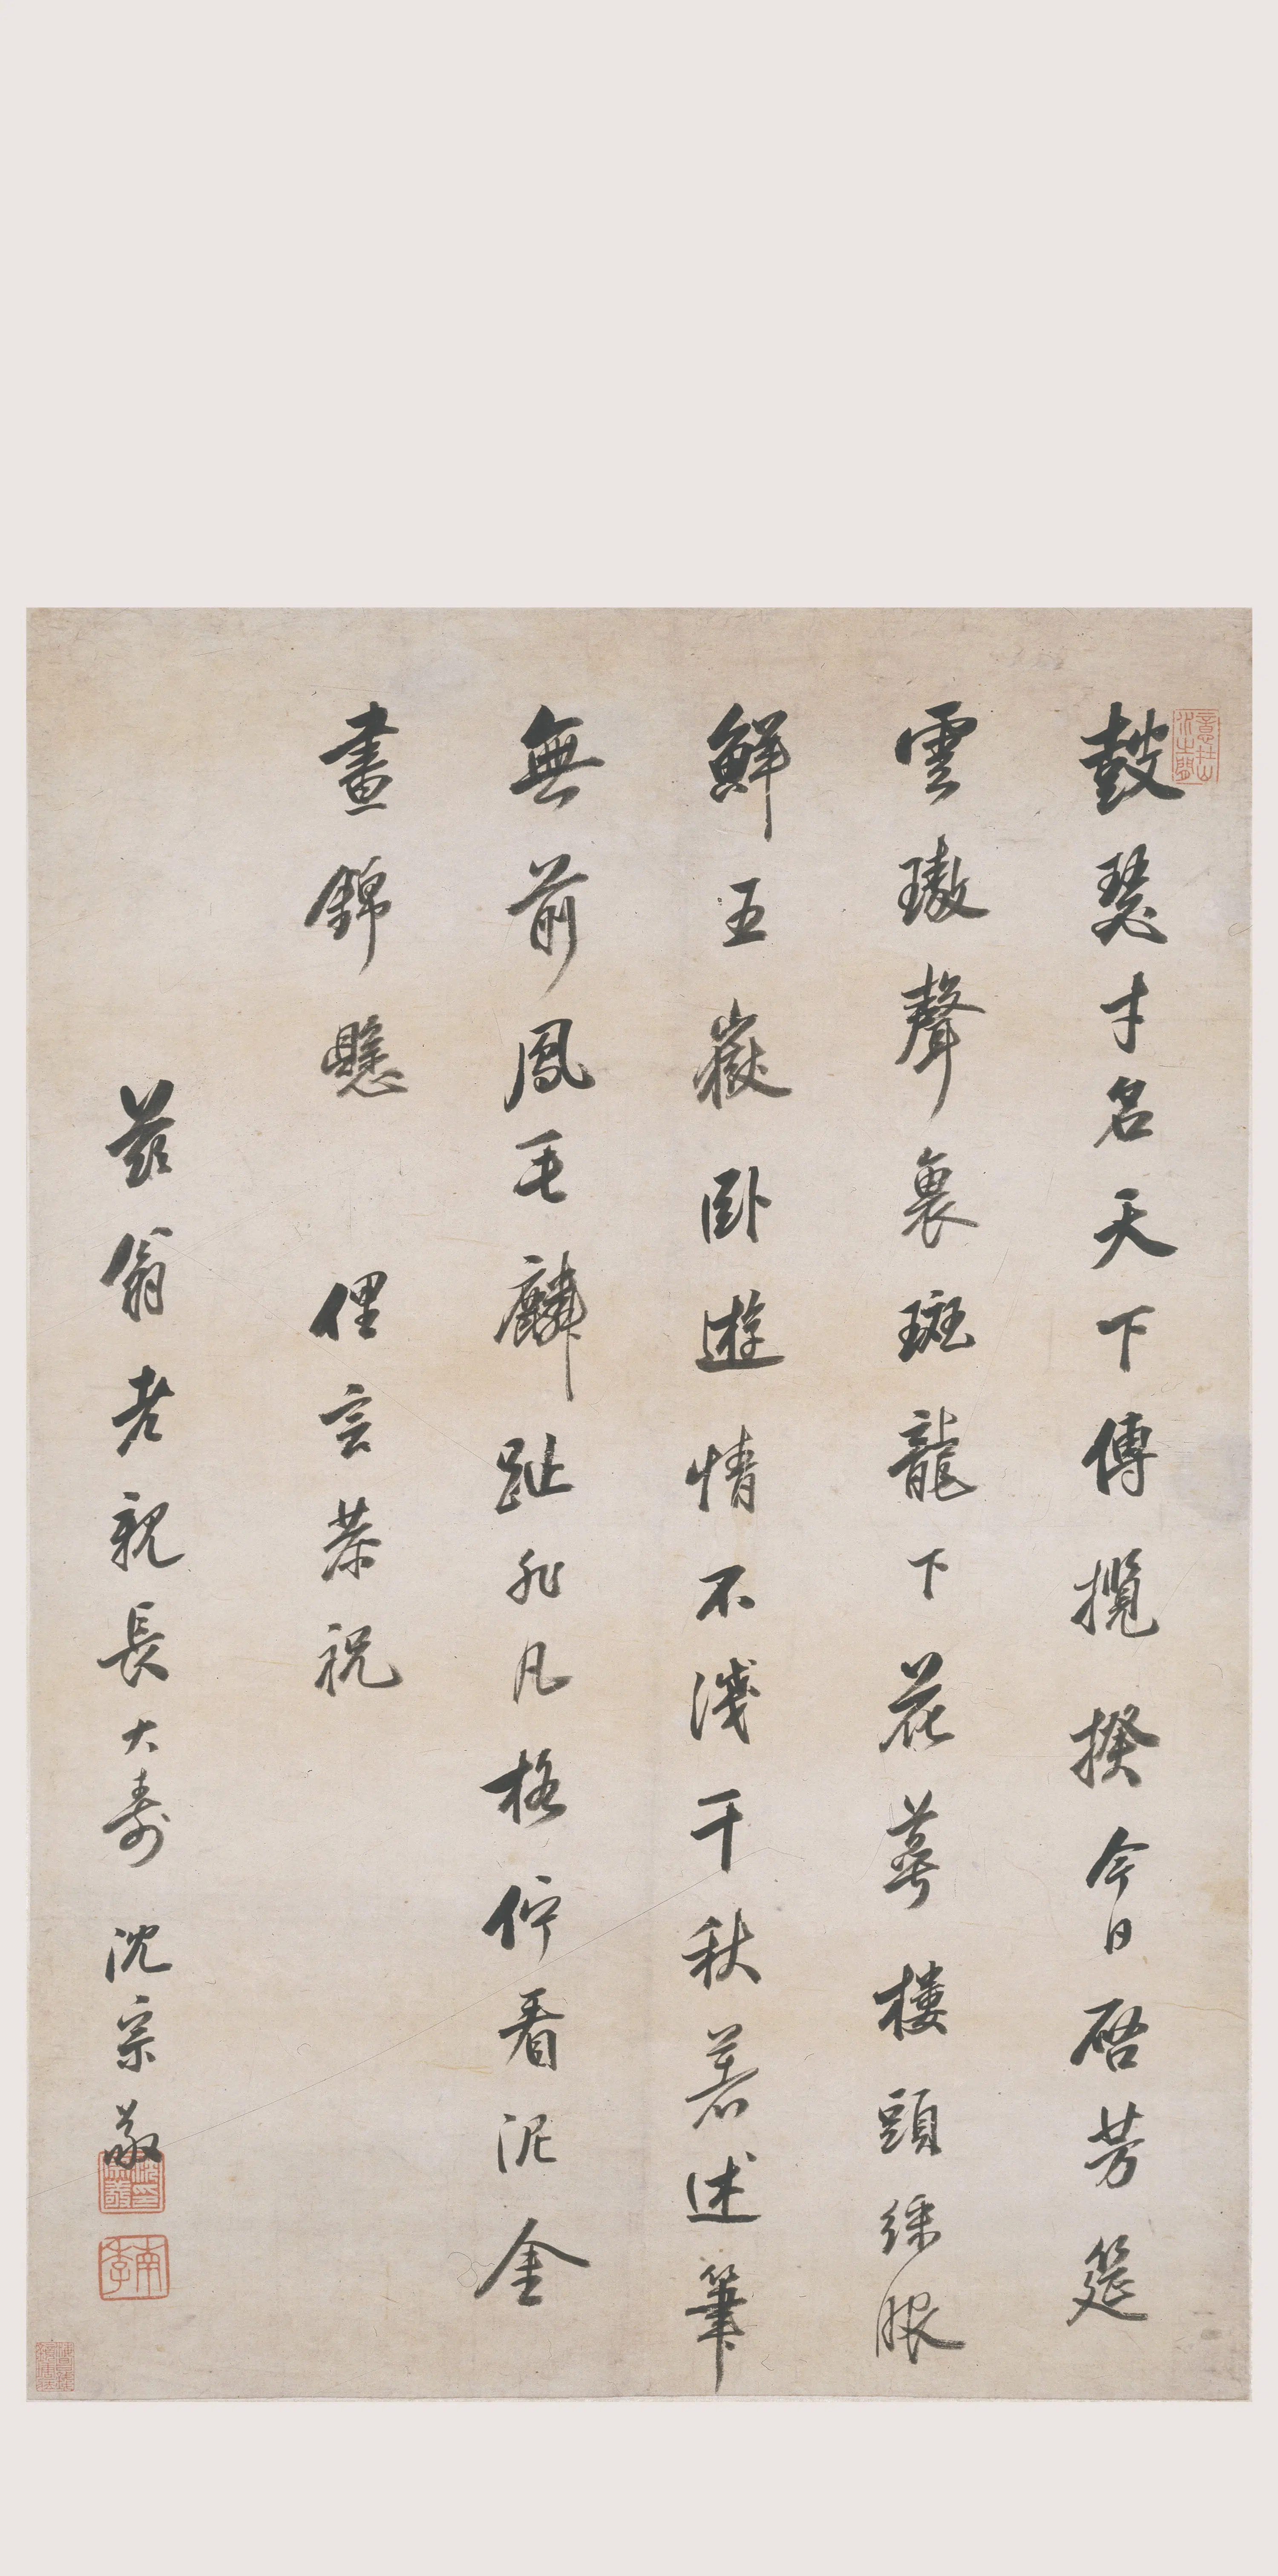 鼓瑟才名天下傳攬揆今日啓芳筵
雲璈聲裏斑龍下花萼樓頭綵服
鮮五嶽卧遊情不淺千秋著述筆
無前鳳毛麟趾非凡格佇看泥金
晝錦懸 俚言恭祝
茲翁老親長大壽 沈宗敬
南季